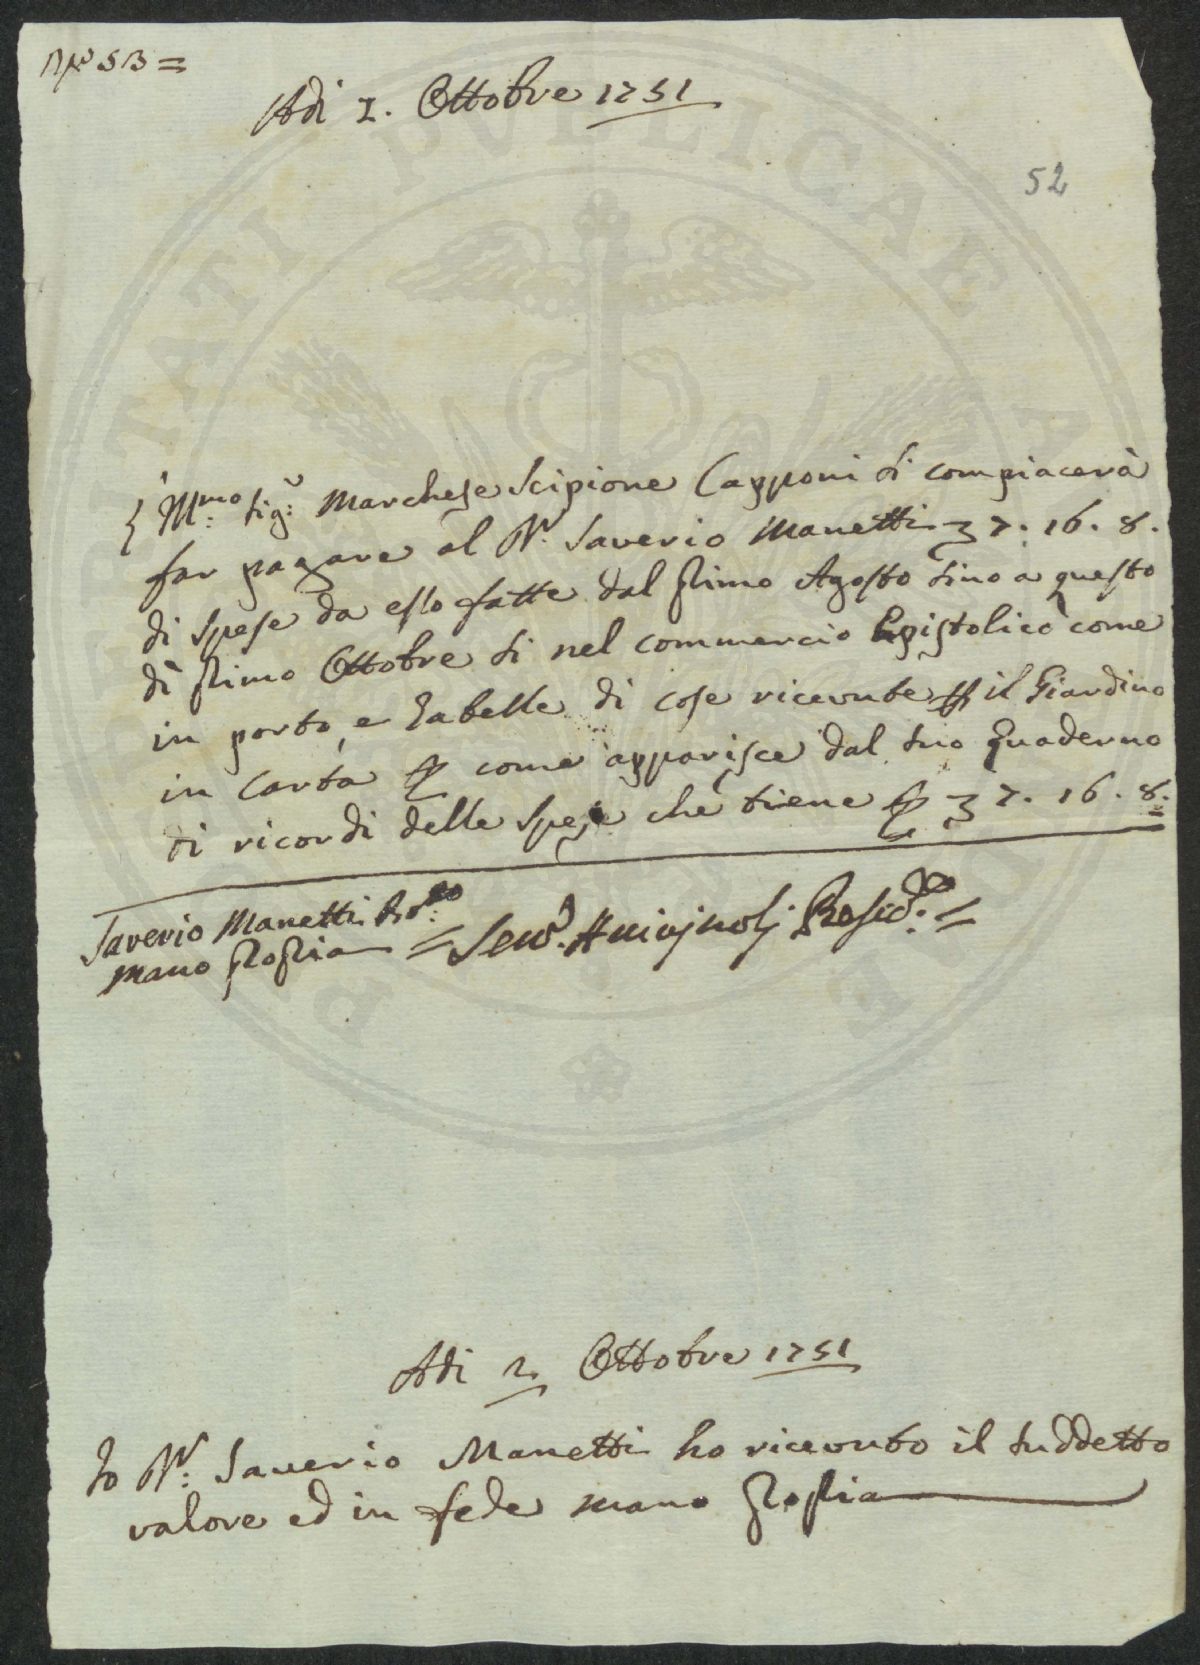 N.º 53 =
Adi 1. Ottobre 1751
52
Ill.mo Sig.r Marchese Scipione Capponi si compiacerà
far pagare al Dr. Saverio Manetti 37. 16. 8.
di spese da esso fatte dal primo Agosto sino a questo
dì primo Ottobre si nel commercio Epistolico come
in porto, e Gabelle di cose ricevute p il Giardino
in Carta p come apparisce dal suo Quaderno
di ricordi delle Spese che tiene p 37. 16. 8.
Saverio Manetti
mano propria = =
Adi 2 Ottobre 1751
Io Dr. Saverio Manetti ho ricevuto il suddetto
valore ed in fede mano propria
PUBLICAE